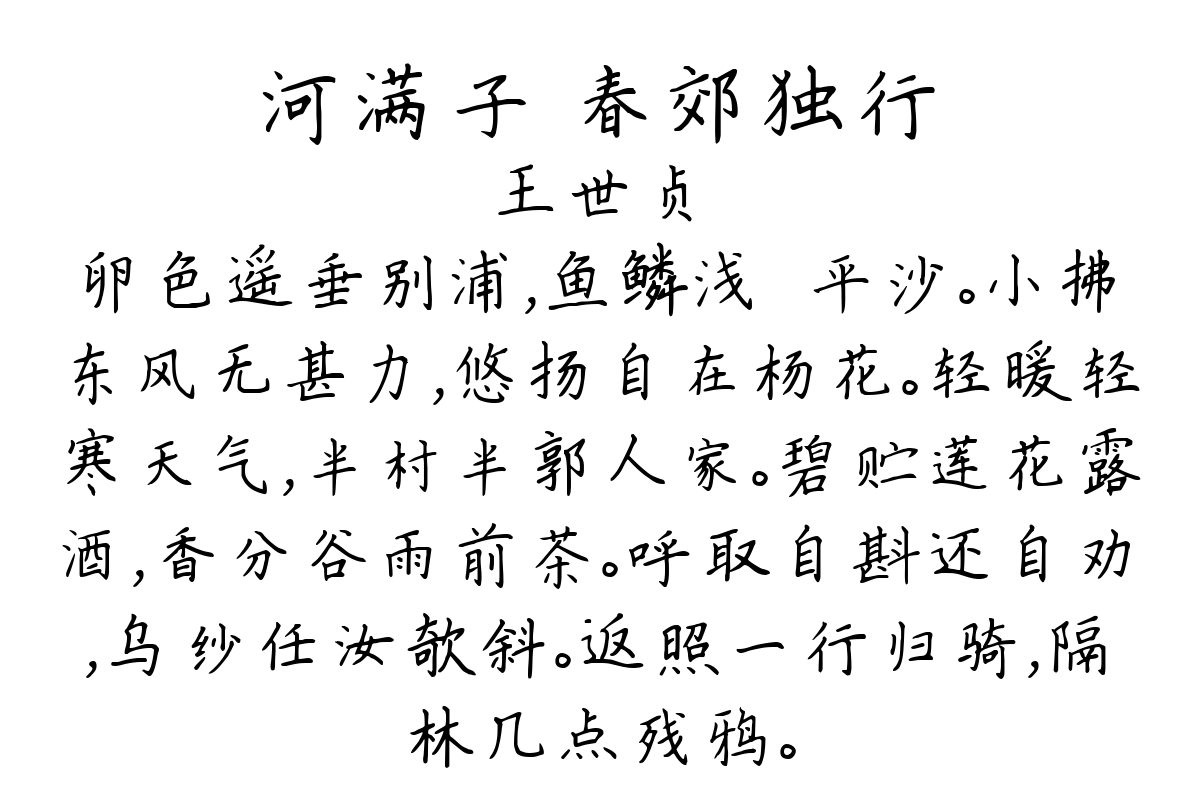 河满子 春郊独行
王世贞
卵色遥垂别浦,鱼鳞浅 平沙。小拂
东风无甚力,悠扬自在杨花。轻暖轻
寒天气,半村半郭人家。碧贮莲花露
酒,香分谷雨前茶。呼取自斟还自劝
,乌纱任汝欹斜。返照一行归骑,隔
林几点残鸦。